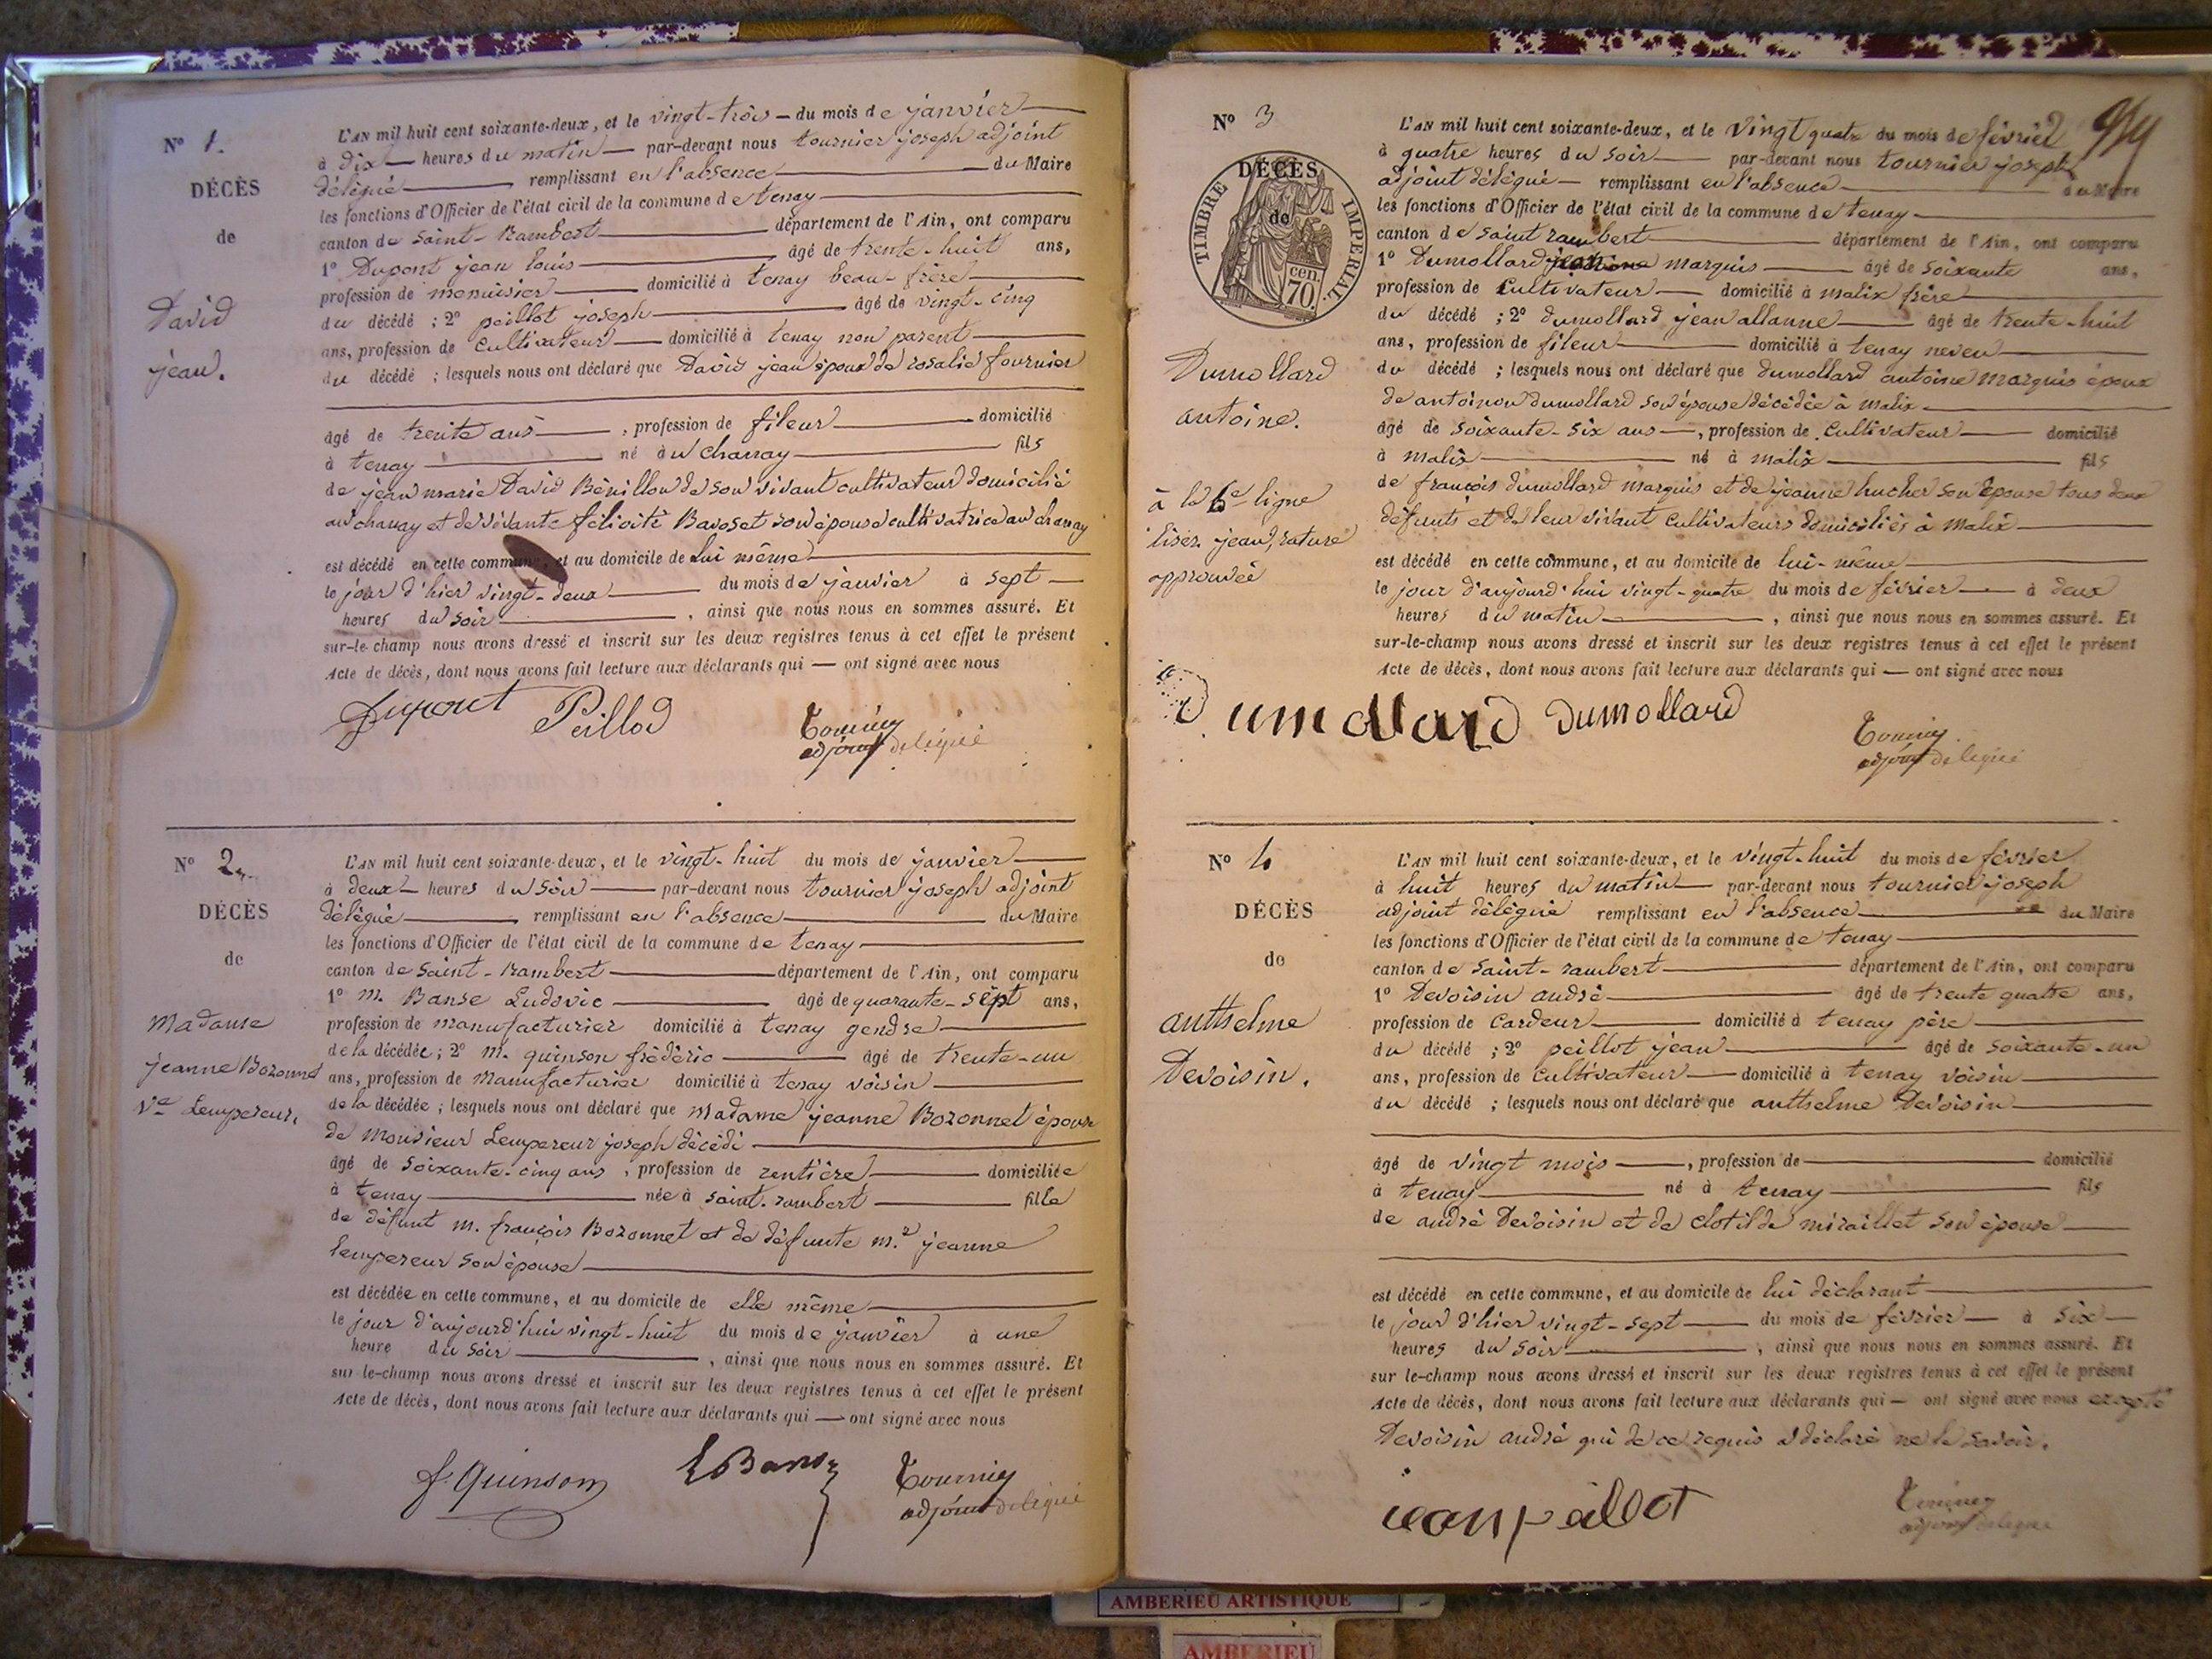 N° 1.
DÉCÈS
de
David
jean.
L'AN mil huit cent soixante-deux, et le vingt-trois du mois de janvier
à dix heures du matin par-devant nous tournier joseph adjoint
délégué remplissant en l'absence du Maire
les fonctions d'Officier de l'état civil de la commune de tenay
canton de Saint-Rambert département de l'Ain, ont comparu
1° Dupont jean louis âgé de trente-huit ans,
profession de menuisier domicilié à tenay beau-frère
du décédé ; 2° peillot joseph âgé de vingt-cinq
ans, profession de cultivateur domicilié à tenay non parent
du décédé ; lesquels nous ont déclaré que David jean époux de rosalie fournier
âgé de trente ans, profession de fileur domicilié
à tenay né au charray fils
de jean marie David de son vivant cultivateur domicilié
au charray et de vivante félicité son épouse cultivatrice au charray
est décédé en cette commune, et au domicile de lui même
le jour d'hier vingt-deux du mois de janvier à sept
heures du soir, ainsi que nous nous en sommes assuré. Et
sur-le-champ nous avons dressé et inscrit sur les deux registres tenus à cet effet le présent
Acte de décès, dont nous avons fait lecture aux déclarants qui — ont signé avec nous
Dupont Peillod Tournier
adjoint délégué
N° 2.
DÉCÈS
de
Madame
jeanne Bozonnet
Ve Lempereur.
L'AN mil huit cent soixante-deux, et le vingt-huit du mois de janvier
à deux heures du soir par-devant nous tournier joseph adjoint
délégué remplissant en l'absence du Maire
les fonctions d'Officier de l'état civil de la commune de tenay
canton de Saint-Rambert département de l'Ain, ont comparu
1° M. Banse Ludovic âgé de quarante-sept ans,
profession de manufacturier domicilié à tenay gendre
de la décédée ; 2° M. quinson frédéric âgé de trente-un
ans, profession de Manufacturier domicilié à tenay voisin
de la décédée ; lesquels nous ont déclaré que Madame jeanne Bozonnet épouse
de Monsieur Lempereur joseph décédé
âgé de soixante-cinq ans, profession de rentière domiciliée
à tenay née à saint-rambert fille
de défunt M. françois Bozonnet et de défunte M.e jeanne
lempereur son épouse
est décédée en cette commune, et au domicile de elle même
le jour d'aujourd'hui vingt-huit du mois de janvier à une
heure du soir, ainsi que nous nous en sommes assuré. Et
sur-le-champ nous avons dressé et inscrit sur les deux registres tenus à cet effet le présent
Acte de décès, dont nous avons fait lecture aux déclarants qui — ont signé avec nous
f. Quinson LBanse Tournier
adjoint délégué
N° 3
DÉCÈS
de
TIMBRE IMPERIAL.
cen.
70.
Dumollard
antoine.
à la 6e ligne
lisez jean, rature
approuvée
L'AN mil huit cent soixante-deux, et le vingt quatre du mois de février
à quatre heures du soir par-devant nous tournier joseph
adjoint délégué remplissant en l'absence du Maire
les fonctions d'Officier de l'état civil de la commune de tenay
canton de Saint rambert département de l'Ain, ont comparu
1° Dumollard marquis âgé de soixante ans,
profession de Cultivateur domicilié à malix frère
du décédé ; 2° dumollard jean allanne âgé de trente-huit
ans, profession de fileur domicilié à tenay neveu
du décédé ; lesquels nous ont déclaré que dumollard antoine marquis époux
de antoinon dumollard son épouse décédée à malix
âgé de soixante-six ans, profession de Cultivateur domicilié
à malix né à malix fils
de françois dumollard marquis et de jeanne hucher son épouse tous deux
défunts et de leur vivant Cultivateurs domiciliés à malix
est décédé en cette commune, et au domicile de lui-même
le jour d'aujourd'hui vingt-quatre du mois de février à deux
heures du matin, ainsi que nous nous en sommes assuré. Et
sur-le-champ nous avons dressé et inscrit sur les deux registres tenus à cet effet le présent
Acte de décès, dont nous avons fait lecture aux déclarants qui — ont signé avec nous
Dumollard Dumollard Tournier
adjoint délégué
N° 4
DÉCÈS
de
anthelme
Devoisin.
L'AN mil huit cent soixante-deux, et le vingt-huit du mois de février
à huit heures du matin par-devant nous tournier joseph
adjoint délégué remplissant en l'absence du Maire
les fonctions d'Officier de l'état civil de la commune de tenay
canton de Saint-rambert département de l'Ain, ont comparu
1° Devoisin andré âgé de trente quatre ans,
profession de Cardeur domicilié à tenay père
du décédé ; 2° peillot jean âgé de soixante-un
ans, profession de Cultivateur domicilié à tenay voisin
du décédé ; lesquels nous ont déclaré que anthelme Devoisin
âgé de vingt mois, profession de domicilié
à tenay né à tenay fils
de andré Devoisin et de clotilde miraillet son épouse
est décédé en cette commune, et au domicile de lui déclarant
le jour d'hier vingt-sept du mois de février à six
heures du soir, ainsi que nous nous en sommes assuré. Et
sur le-champ nous avons dressé et inscrit sur les deux registres tenus à cet effet le présent
Acte de décès, dont nous avons fait lecture aux déclarants qui — ont signé avec nous excepté
Devoisin andré qui de ce requis a déclaré ne le savoir.
jean peillot Tournier
adjoint délégué
AMBERIEU ARTISTIQUE
AMBERIEU